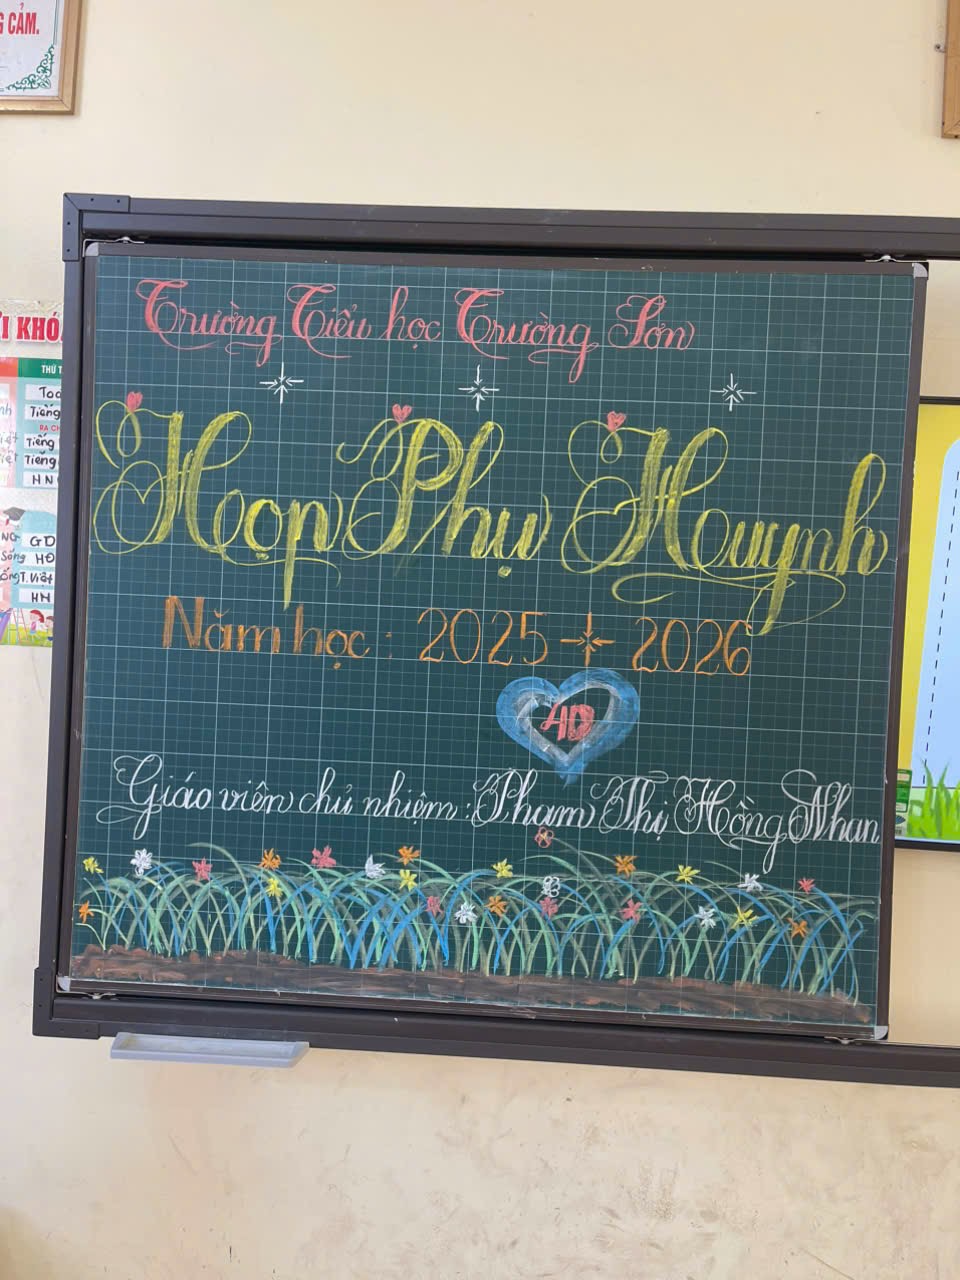 G CẢM.
Trường Tiểu học Trường Sơn
Họp Phụ Huynh
Năm học : 2025 - 2026
4D
Giáo viên chủ nhiệm : Phạm Thị Hồng Nhan
I KHÓ
THỨ T
Toá
Tiếng
RA CH
Tiếng
Tiếng
HN
GD
HĐ
T.Việt
HN